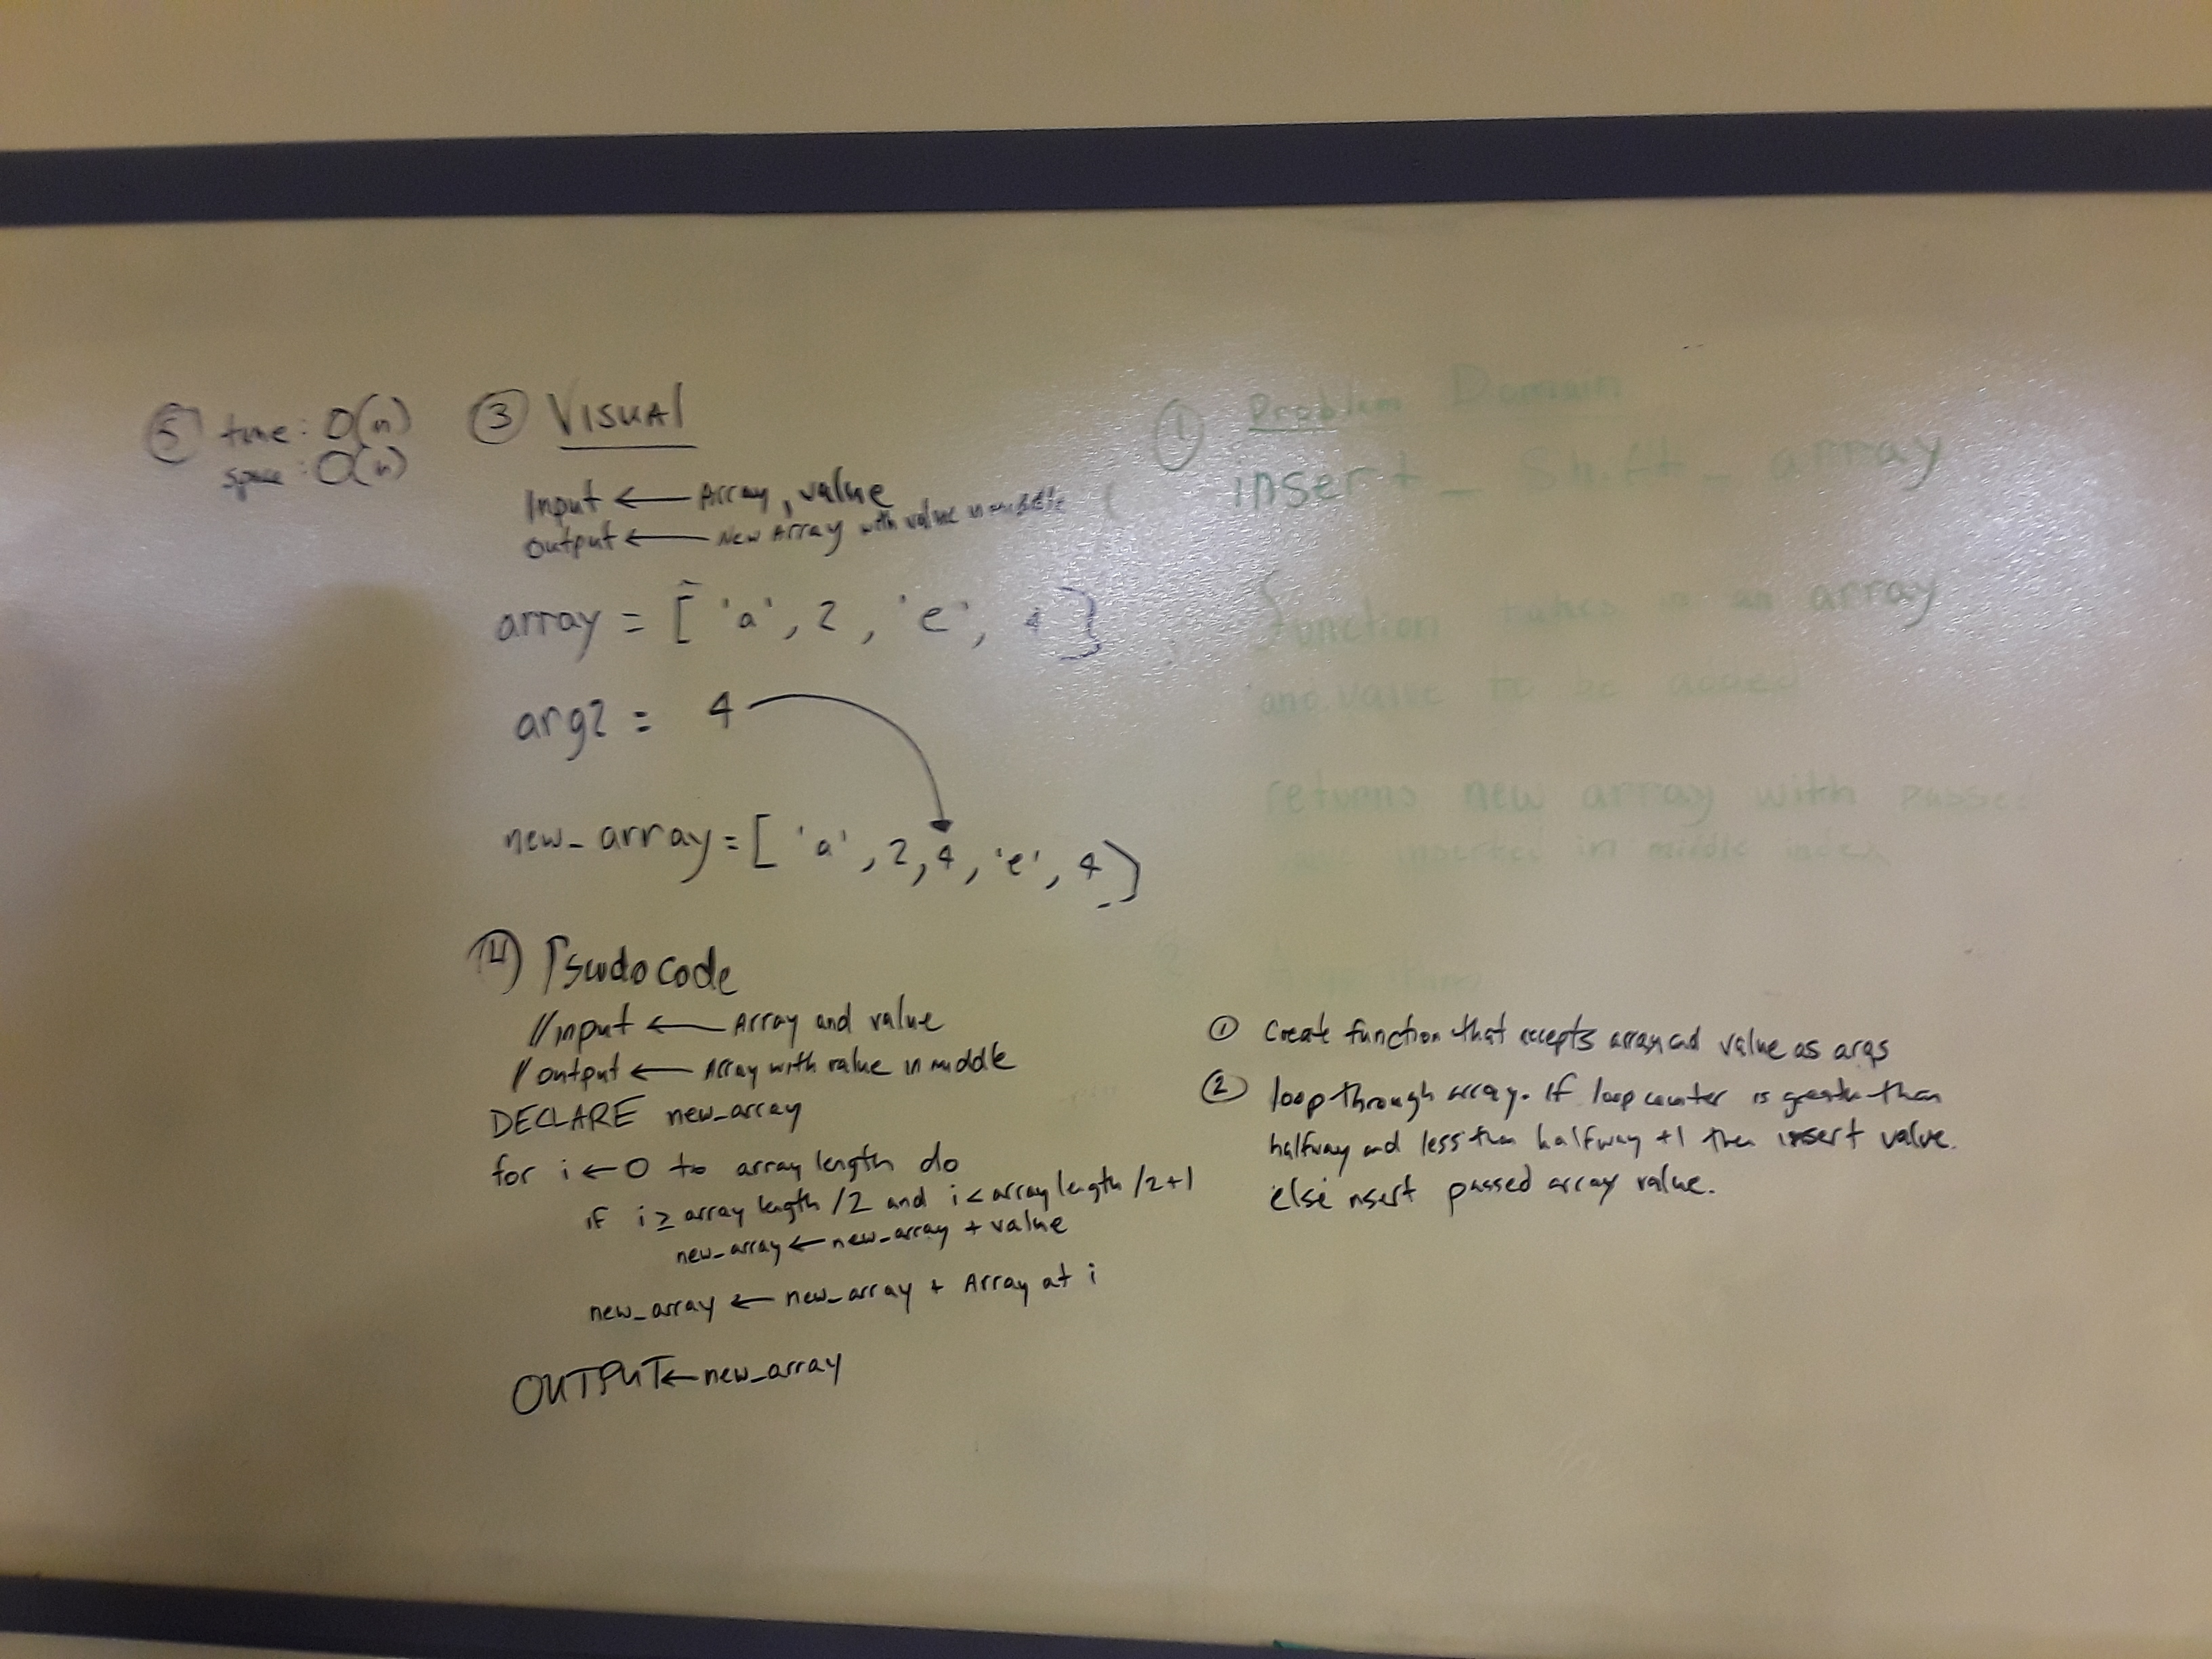 ⑤ time: O(n)
space: O(n)
③ Visual
Input ← Array, value
Output ← New Array with value in middle
array = ['a', 2, 'e', 4]
arg2 = 4
new_array = ['a', 2, 4, 'e', 4]
④ Psudocode
// input ← Array and value
// output ← Array with value in middle
DECLARE new_array
for i ← 0 to array length do
if i ≥ array length /2 and i < array length /2+1
new_array ← new_array + value
new_array ← new_array + Array at i
OUTPUT ← new_array
① Problem Domain
insert_shift_array
function takes in an array
and value to be added
returns new array with passed
inserted in middle index
② 
① Create function that accepts array and value as args
② loop through array. If loop counter is greater than
halfway and less than halfway +1 then insert value.
else insert passed array value.